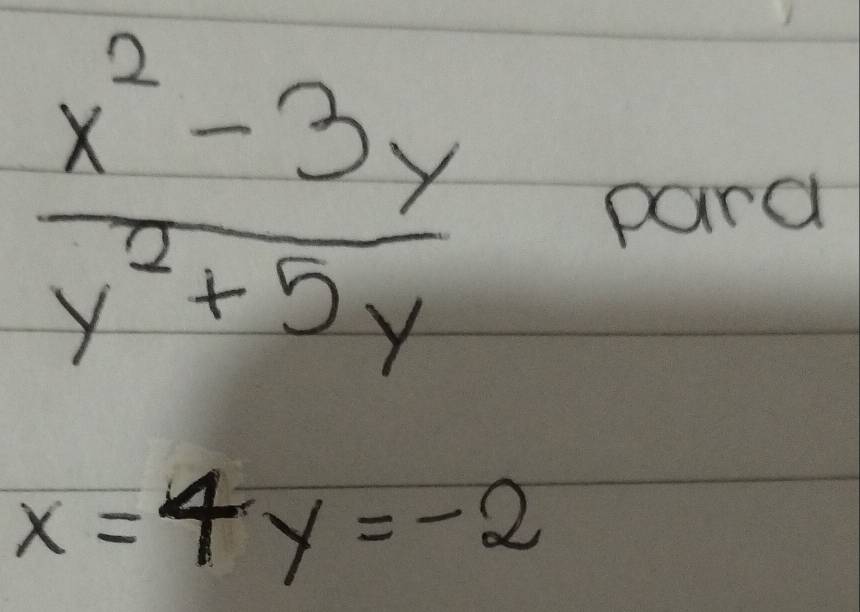 x² - 3y
y² + 5y
para
x = 4 y = -2